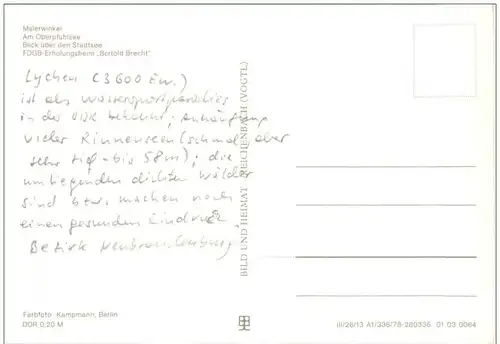 Malerwinkel
Am Oberpfuhlsee
Blick über den Stadtsee
FDGB-Erholungsheim „Bertold Brecht"
Lychen (3600 Ew.)
ist als Wassersportparadies
in der DDR bekannt; Anhäufung
vieler Rinnenseen (schmal aber
sehr tief - bis 58 m); die
umliegenden dichten Wälder
sind bzw. machen noch
einen gesunden Eindruck.
Bezirk Neubrandenburg
BILD UND HEIMAT REICHENBACH (VOGTL)
Farbfoto: Kampmann, Berlin
DDR 0,20 M
III/26/13 A1/336/78-280336 01 03 0064